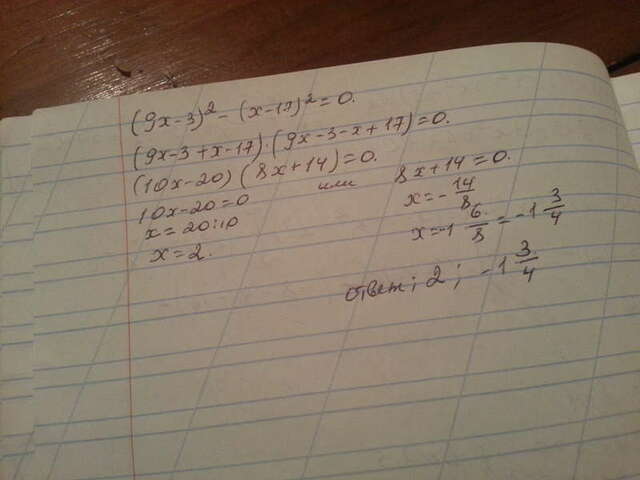 (9x-3)² - (x-17)² = 0.
(9x-3+x-17)·(9x-3-x+17)=0.
(10x-20)(8x+14)=0.
10x-20=0 или 8x+14=0.
x=20:10 x=-14/8
x=2. x=-1 6/8 = -1 3/4
ответ; 2; -1 3/4